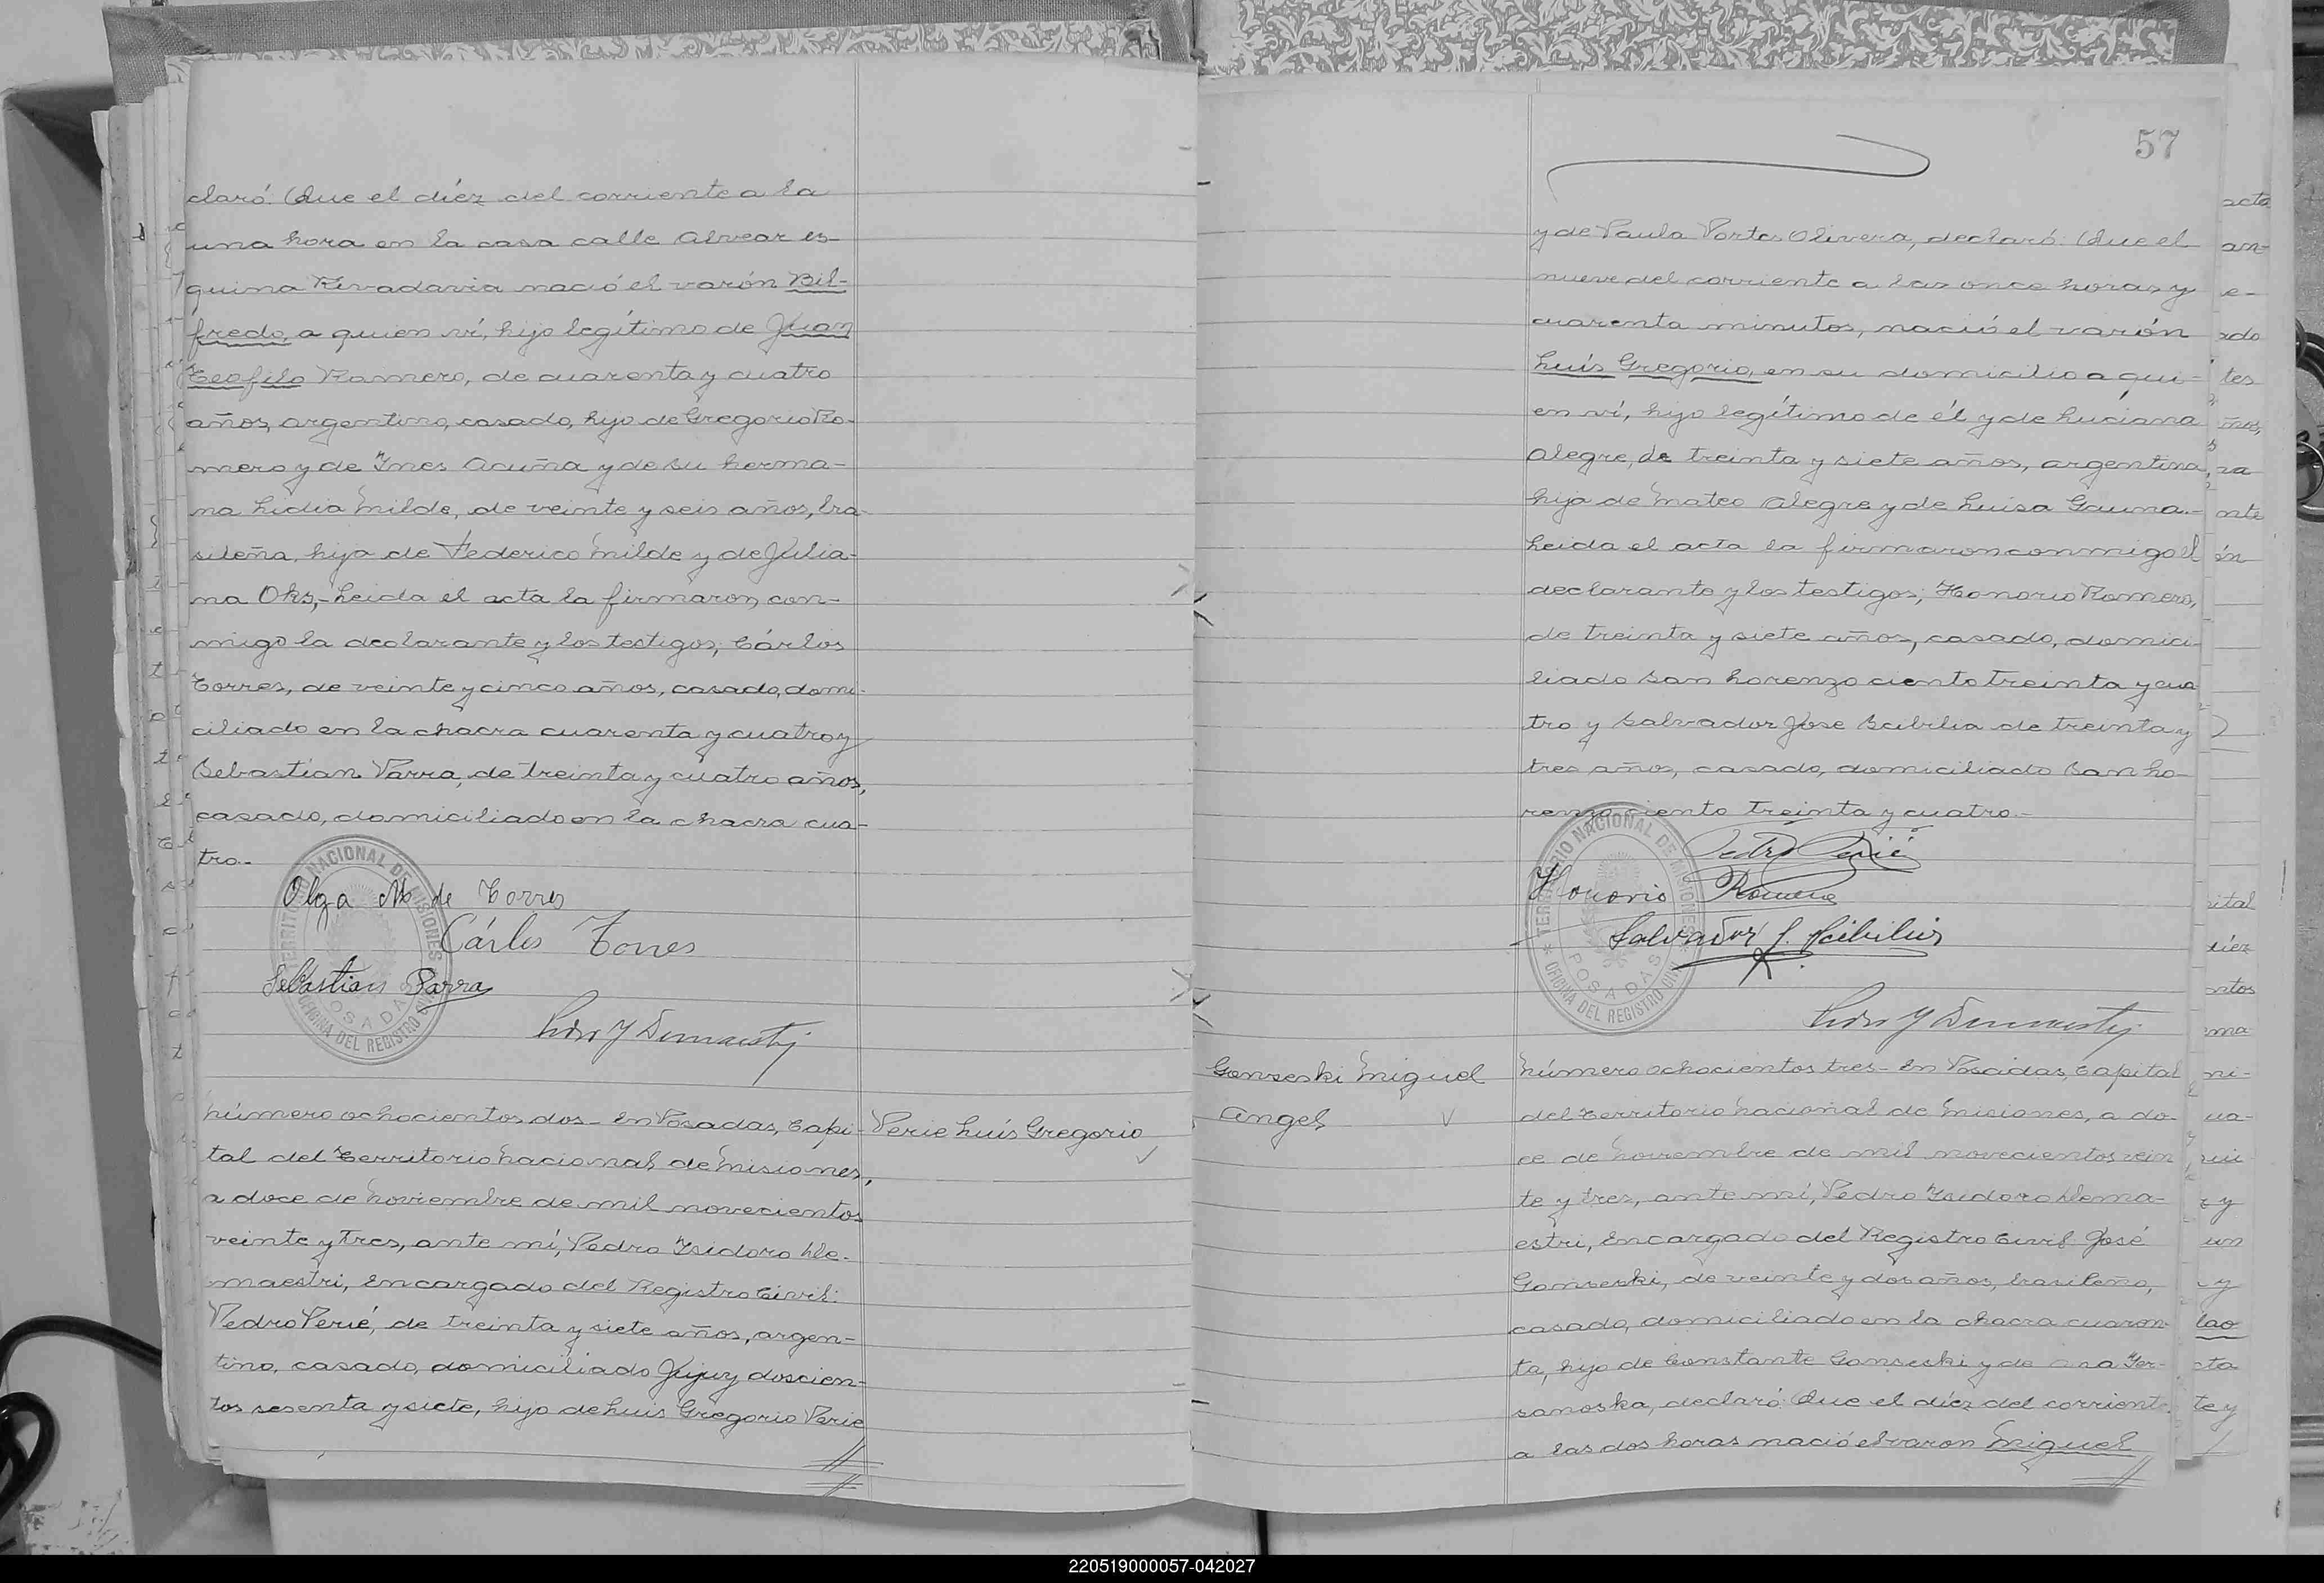 claró: Que el diéz del corriente a la
una hora en la casa calle Alvear es-
quina Rivadavia nació el varón Bil-
fredo, a quien ví, hijo legítimo de Juan
Teofilo Romero, de cuarenta y cuatro
años, argentino, casado, hijo de Gregorio Ro-
mero y de Ines Acuña y de su herma-
na Lidia Milde, de veinte y seis años, bra-
sileña, hija de Federico Milde y de Julia-
na Oks,- Leida el acta la firmaron con-
migo la declarante y los testigos; Cárlos
Torres, de veinte y cinco años, casado, domi-
ciliado en la chacra cuarenta y cuatro y
Sebastian Parra, de treinta y cuatro años,
casado, domiciliado en la chacra cua-
tro.-
TERRITORIO NACIONAL DE MISIONES
OFICINA DEL REGISTRO CIVIL
POSADAS
Olga M. de Torres
Cárlos Torres
Sebastian Parra
Número ochocientos dos- En Posadas, Capi-
tal del Territorio Nacional de Misiones,
a doce de Noviembre de mil novecientos
veinte y tres, ante mí, Pedro Isidoro De-
maestri, Encargado del Registro Civil:
Pedro Perié, de treinta y siete años, argen-
tino, casado, domiciliado Jujuy doscien-
tos sesenta y siete, hijo de Luis Gregorio Perie
Perie Luís Gregorio
57
y de Paula Portes Olivera, declaró: Que el
nueve del corriente a las once horas y
cuarenta minutos, nació el varón
Luís Gregorio, en su domicilio a qui-
en ví, hijo legítimo de él y de Luciana
Alegre, de treinta y siete años, argentina,
hija de Mateo Alegre y de Luisa Gauna.-
Leida el acta la firmaron conmigo el
declarante y los testigos; Honorio Romero,
de treinta y siete años, casado, domici-
liado San Lorenzo ciento treinta y cua-
tro y Salvador Jose Scibilia de treinta y
tres años, casado, domiciliado San Lo-
renzo ciento treinta y cuatro.-
TERRITORIO NACIONAL DE MISIONES
OFICINA DEL REGISTRO CIVIL
POSADAS
Pedro Perié
Honorio Romero
Salvador J. Scibilia
Gonseski Miguel
Angel
Número ochocientos tres- En Posadas, Capital
del Territorio Nacional de Misiones, a do-
ce de Noviembre de mil novecientos vein
te y tres, ante mí, Pedro Isidoro Dema-
estri, Encargado del Registro Civil José
Gonseski, de veinte y dos años, brasileño,
casado, domiciliado en la chacra cuaren-
ta, hijo de Constante Gonseski y de Ana Ger-
sanoska, declaró: Que el diéz del corriente
a las dos horas nació el varon Miguel
220519000057-042027